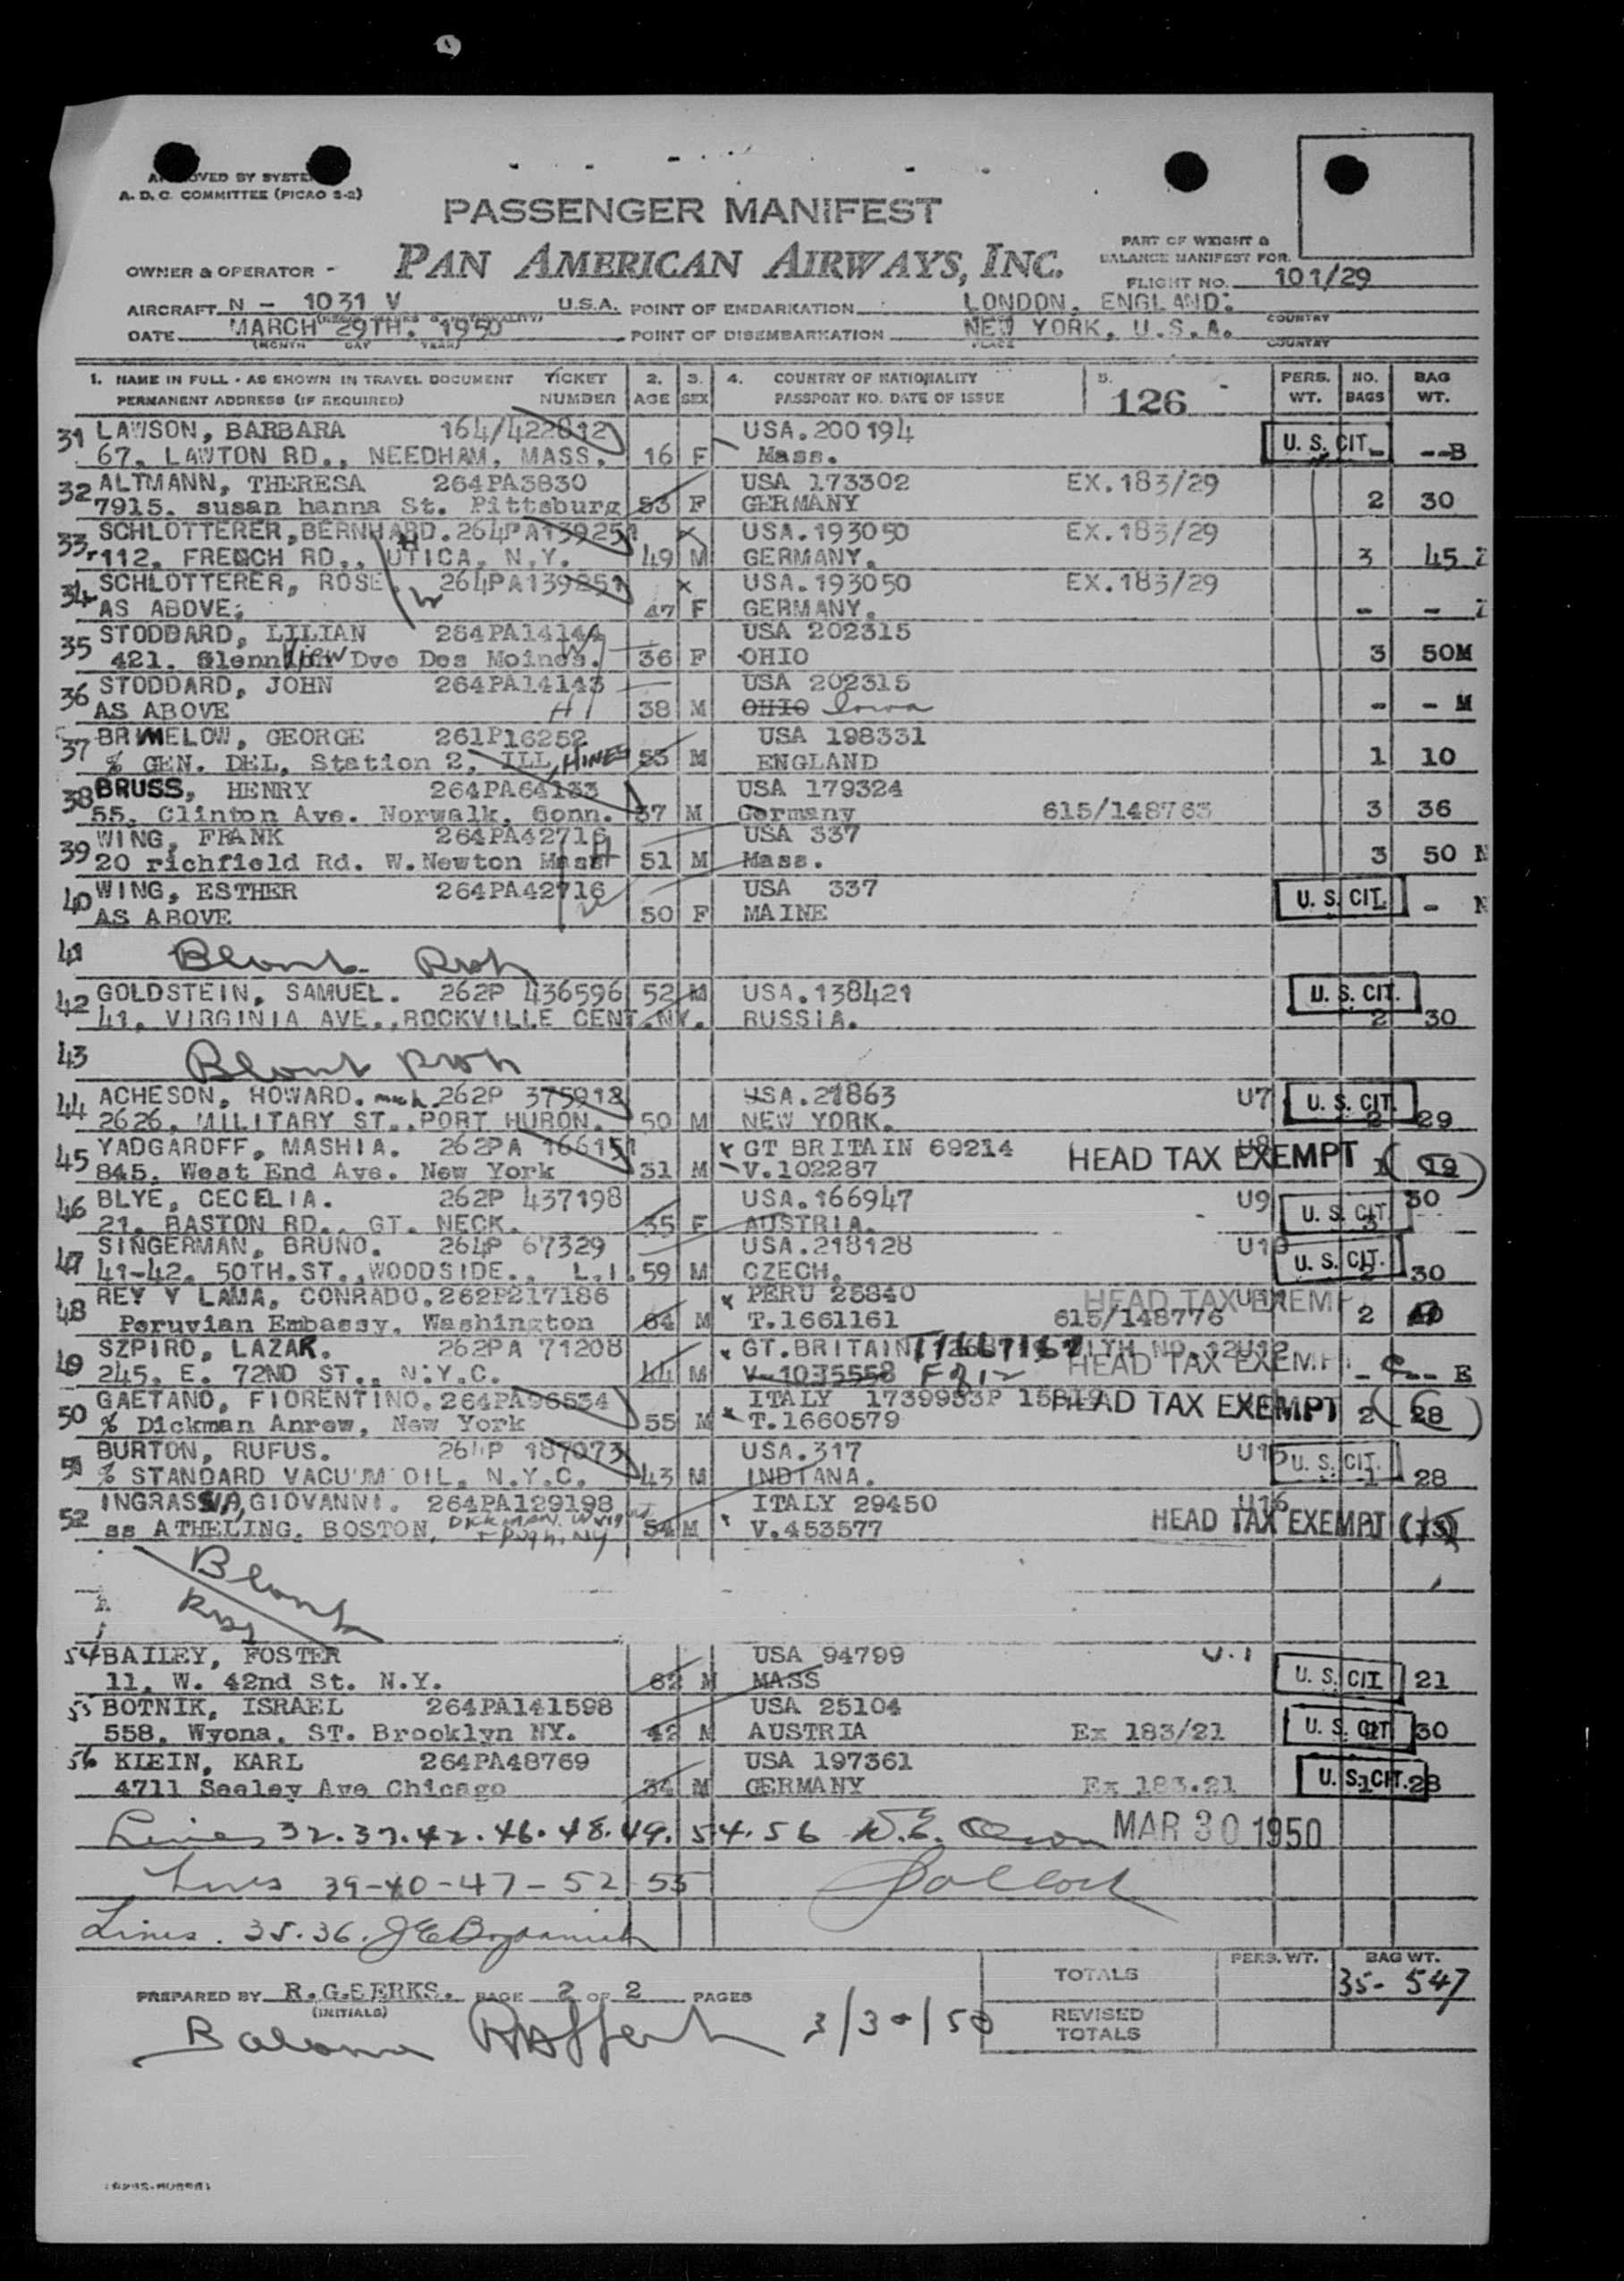 APPROVED BY SYSTEM
A. D. C. COMMITTEE (PICAO 2-2)
PASSENGER MANIFEST
OWNER & OPERATOR - PAN AMERICAN AIRWAYS, INC.
PART OF WEIGHT &
BALANCE MANIFEST FOR
FLIGHT NO. 101/29
AIRCRAFT N - 1031 V U.S.A. POINT OF EMBARKATION LONDON, ENGLAND:
COUNTRY
DATE MARCH 29TH. 1950 POINT OF DISEMBARKATION NEW YORK, U.S.A.
(MONTH DAY YEAR) PLACE COUNTRY
1. NAME IN FULL - AS SHOWN IN TRAVEL DOCUMENT TICKET 2. 3. 4. COUNTRY OF NATIONALITY 5. PERS. NO. BAG
PERMANENT ADDRESS (IF REQUIRED) NUMBER AGE SEX PASSPORT NO. DATE OF ISSUE 126 WT. BAGS WT.
31 LAWSON, BARBARA 164/422812 USA.200194 U. S. CIT.
67, LAWTON RD., NEEDHAM, MASS. 16 F Mass. - --B
32 ALTMANN, THERESA 264PA3830 USA 173302 EX.183/29
7915. susan hanna St. Pittsburg 53 F GERMANY 2 30
33 SCHLOTTERER, BERNHARD. 264PA139251 X USA.193050 EX.183/29
112, FRENCH RD., UTICA, N.Y. 49 M GERMANY. 3 45 Z
34 SCHLOTTERER, ROSE W 264PA139251 X USA.193050 EX.183/29
AS ABOVE; 47 F GERMANY. - - Z
35 STODDARD, LILIAN 264PA14144 USA 202315
421. Glenn View Dve Des Moines. W 36 F OHIO 3 50M
36 STODDARD, JOHN 264PA14143 USA 202315
AS ABOVE H 38 M OHIO Iowa - - M
37 BRIMELOW, GEORGE 261P16252 USA 198331
% GEN. DEL, Station 2, ILL, HINES 55 M ENGLAND 1 10
38 BRUSS, HENRY 264PA64133 USA 179324
55, Clinton Ave. Norwalk, Conn. 37 M Germany 615/148763 3 36
39 WING, FRANK 264PA42716 USA 337
20 richfield Rd. W.Newton Mass H 51 M Mass. 3 50 N
40 WING, ESTHER 264PA42716 USA 337 U. S. CIT.
AS ABOVE W 50 F MAINE - N
41 Blank
42 GOLDSTEIN, SAMUEL. 262P 436596 52 M USA.138421 U. S. CIT.
41, VIRGINIA AVE., ROCKVILLE CENT.NY. RUSSIA. 2 30
43 Blank
44 ACHESON, HOWARD. mich. 262P 375912 USA.21863 U7 U. S. CIT.
2626, MILITARY ST., PORT HURON. 50 M NEW YORK. 2 29
45 YADGAROFF, MASHIA. 262PA 166151 x GT BRITAIN 69214 U8 HEAD TAX EXEMPT
845, West End Ave. New York 31 M V.102287 1 (19)
46 BLYE, CECELIA. 262P 437198 USA.166947 U9 U. S. CIT. 30
21, BASTON RD., GT. NECK. 35 F AUSTRIA.
47 SINGERMAN, BRUNO. 264P 67329 USA.218128 U10 U. S. CIT.
41-42, 50TH.ST., WOODSIDE., L.I. 59 M CZECH. 2 30
48 REY Y LAMA, CONRADO. 262P217186 x PERU 25840 HEAD TAX EXEMPT
Peruvian Embassy, Washington 64 M T.1661161 615/148776 2
49 SZPIRO, LAZAR. 262PA 71208 x GT.BRITAIN
245, E. 72ND ST., N.Y.C. 44 M V-1035558 HEAD TAX EXEMPT
50 GAETANO, FIORENTINO. 264PA96534 ITALY 1739953P HEAD TAX EXEMPT
% Dickman Anrew, New York 55 M x T.1660579 2 (28)
51 BURTON, RUFUS. 264P 187073 USA.317 U15 U. S. CIT.
% STANDARD VACUUM OIL, N.Y.C. 43 M INDIANA. 1 28
52 INGRASSIA, GIOVANNI. 264PA129198 ITALY 29450 U16
ss ATHELING, BOSTON, Dickman, Wright + Pugh, NY 54 M V.453577 HEAD TAX EXEMPT
Blank
54 BAILEY, FOSTER USA 94799 U.1
11. W. 42nd St. N.Y. 62 M MASS U. S. CIT 21
55 BOTNIK, ISRAEL 264PA141598 USA 25104
558, Wyona, ST. Brooklyn NY. 42 M AUSTRIA Ex 183/21 U. S. CIT 30
56 KLEIN, KARL 264PA48769 USA 197361
4711 Seeley Ave Chicago 34 M GERMANY Ex 183.21 U. S. CIT. 1 28
Lines 32.37.42.46.48.49.54.56 MAR 30 1950
Lines 39-40-47-52 55
Lines. 35.36.
TOTALS PERS. WT. BAG WT. 35- 547
PREPARED BY R.G.SERKS. PAGE 2 OF 2 PAGES
(INITIALS)
REVISED TOTALS
3/30/50